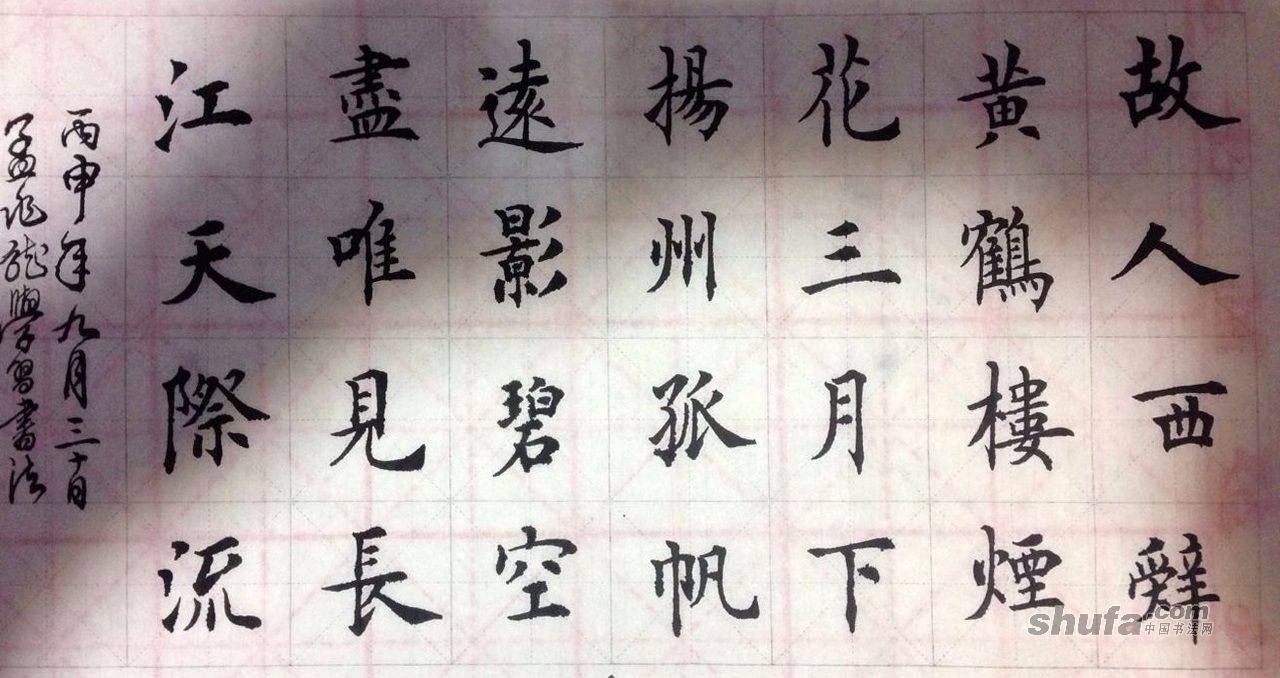 故人西辤
黄鶴樓煙
花三月下
揚州孤帆
遠影碧空
盡唯見長
江天際流
丙申年九月三十日
孟兆龍學習書法
shufa.com
中国书法网